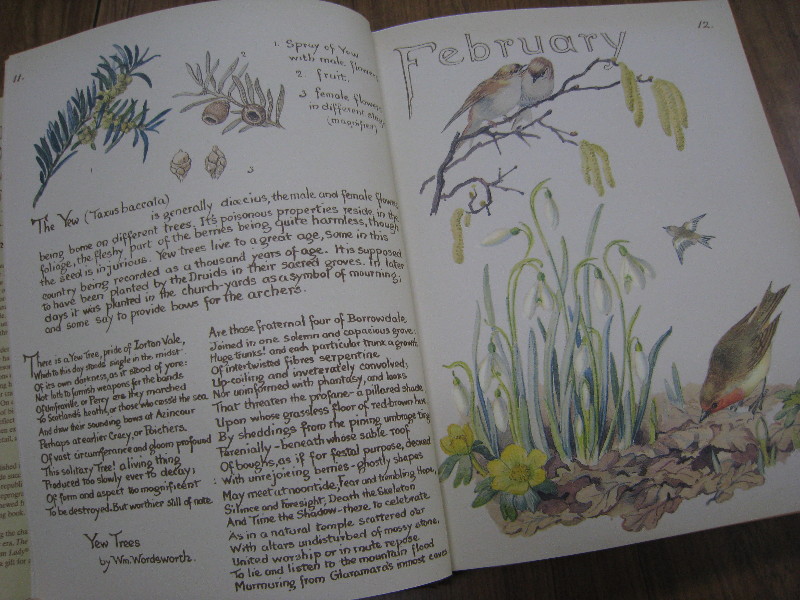 11.
1. Spray of Yew
with male flowers
2. fruit.
3 female flowers
in different stages
(magnified)
2
1
3
The Yew (Taxus baccata)
is generally diœcius, the male and female flowers
being borne on different trees. It's poisonous properties reside in the
foliage, the fleshy part of the berries being quite harmless, though
the seed is injurious. Yew trees live to a great age, some in this
country being recorded as a thousand years of age. It is supposed
to have been planted by the Druids in their sacred groves. In later
days it was planted in the church-yards as a symbol of mourning;
and some say to provide bows for the archers.
There is a Yew Tree, pride of Lorton Vale,
Which to this day stands single in the midst
Of its own darkness, as it stood of yore:
Not loth to furnish weapons for the bands
Of Umfraville or Percy ere they marched
To Scotland's heaths; or those who cross'd the sea
And drew their sounding bows at Azincour
Perhaps at earlier Crecy, or Poictiers.
Of vast circumference and gloom profound
This solitary Tree! a living thing
Produced too slowly ever to decay;
Of form and aspect too magnificent
To be destroyed. But worthier still of note
Yew Trees
by Wm. Wordsworth.
Are those fraternal four of Borrowdale,
Joined in one solemn and capacious grove:
Huge trunks! and each particular trunk a growth
Of intertwisted fibres serpentine
Up-coiling and inveterately convolved;
Nor uninformed with phantasy, and looks
That threaten the profane - a pillared shade
Upon whose grassless floor of red-brown hue
By sheddings from the pining umbrage
Perenially - beneath whose sable roof
Of boughs, as if for festal purpose, decked
With unrejoicing berries - ghostly shapes
May meet at noontide, Fear and trembling Hope,
Silence and Foresight, Death the Skeleton
And Time the Shadow - there, to celebrate
As in a natural temple scattered o'er
With altars undisturbed of mossy stone,
United worship or in mute repose
To lie and listen to the mountain flood
Murmuring from Glaramara's inmost caves
February
12.